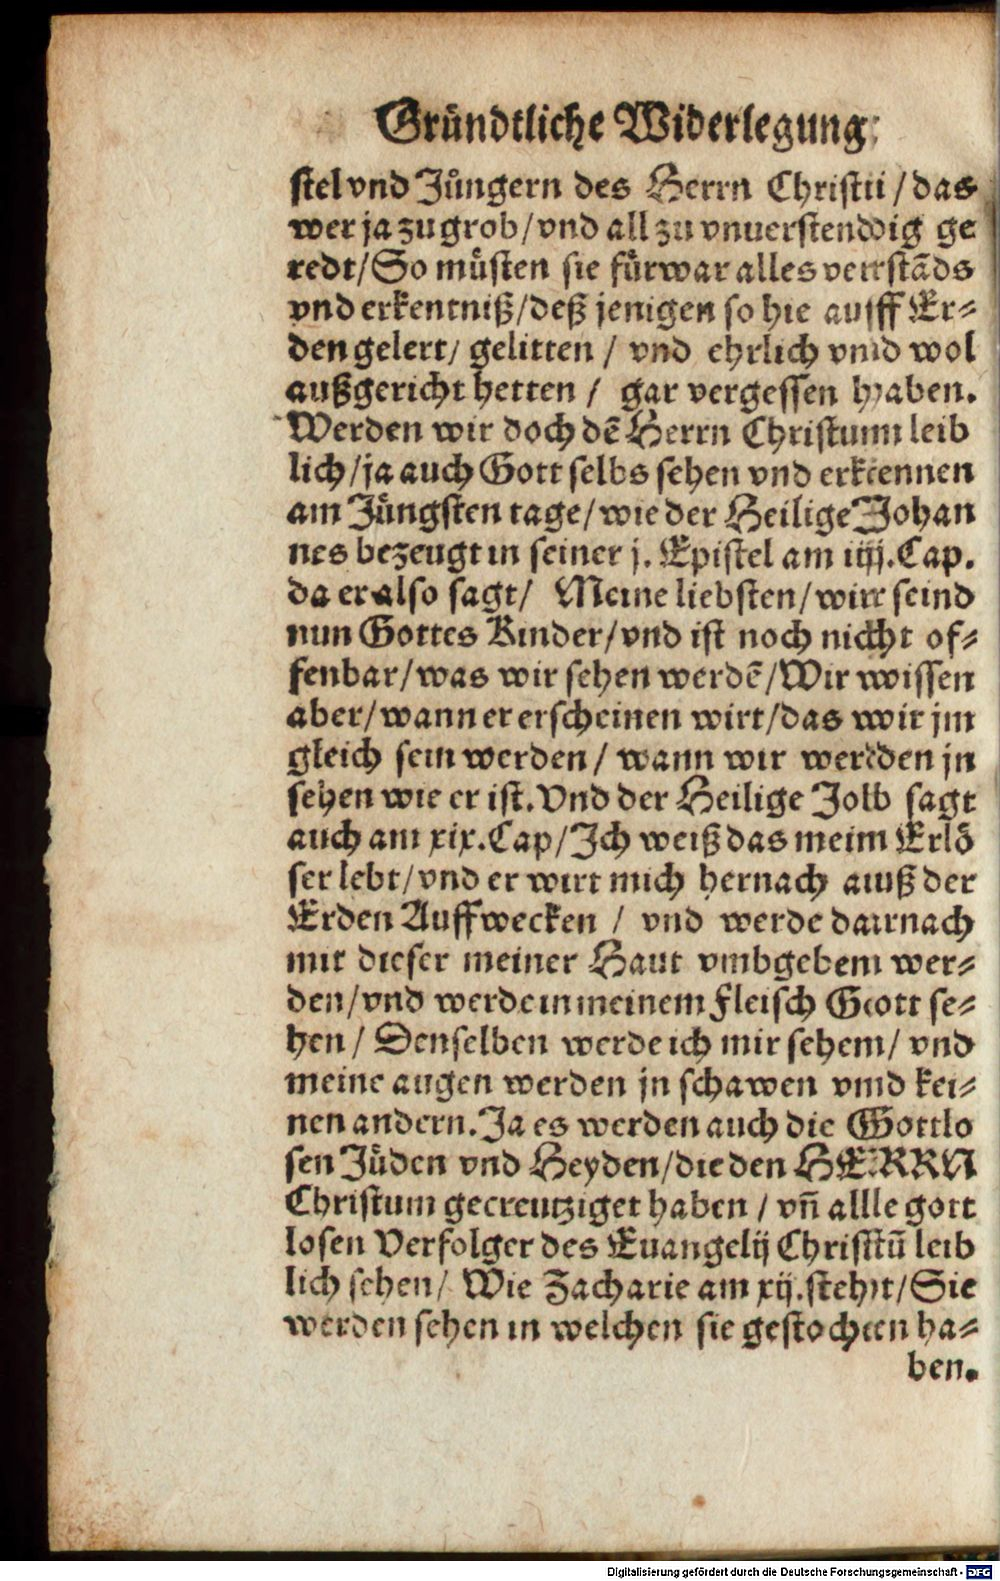 Gründtliche Widerlegung
stel vnd Jüngern des Herrn Christi / das
wer ja zu grob / vnd all zu vnuerstendig ge
redt / So müsten sie fürwar alles verstãds
vnd erkentniß / deß jenigen so hie auff Er⸗
den gelert / gelitten / vnd ehrlich vnd wol
außgericht hetten / gar vergessen haben.
Werden wir doch dẽ Herrn Christum leib
lich / ja auch Gott selbs sehen vnd erkennen
am Jüngsten tage / wie der Heilige Johan
nes bezeugt in seiner j. Epistel am iij. Cap.
da er also sagt / Meine liebsten / wir seind
nun Gottes Kinder / vnd ist noch nicht of⸗
fenbar / was wir sehen werdẽ / Wir wissen
aber / wann er erscheinen wirt / das wir jm
gleich sein werden / wann wir werden jn
sehen wie er ist. Vnd der Heilige Job sagt
auch am xix. Cap / Ich weiß das meim Erlö
ser lebt / vnd er wirt mich hernach auß der
Erden Auffwecken / vnd werde darnach
mit dieser meiner Haut vmbgeben wer⸗
den / vnd werde in meinem fleisch Gott se⸗
hen / Denselben werde ich mir sehen / vnd
meine augen werden jn schawen vnd kei⸗
nen andern. Ja es werden auch die Gottlo
sen Jüden vnd Heyden / die den HERRN
Christum gecreutziget haben / vñ alle gott
losen Verfolger des Euangelij Christũ leib
lich sehen / Wie Zacharie am xij. steht / Sie
werden sehen in welchen sie gestochen ha⸗
ben.
Digitalisierung gefördert durch die Deutsche Forschungsgemeinschaft - DFG